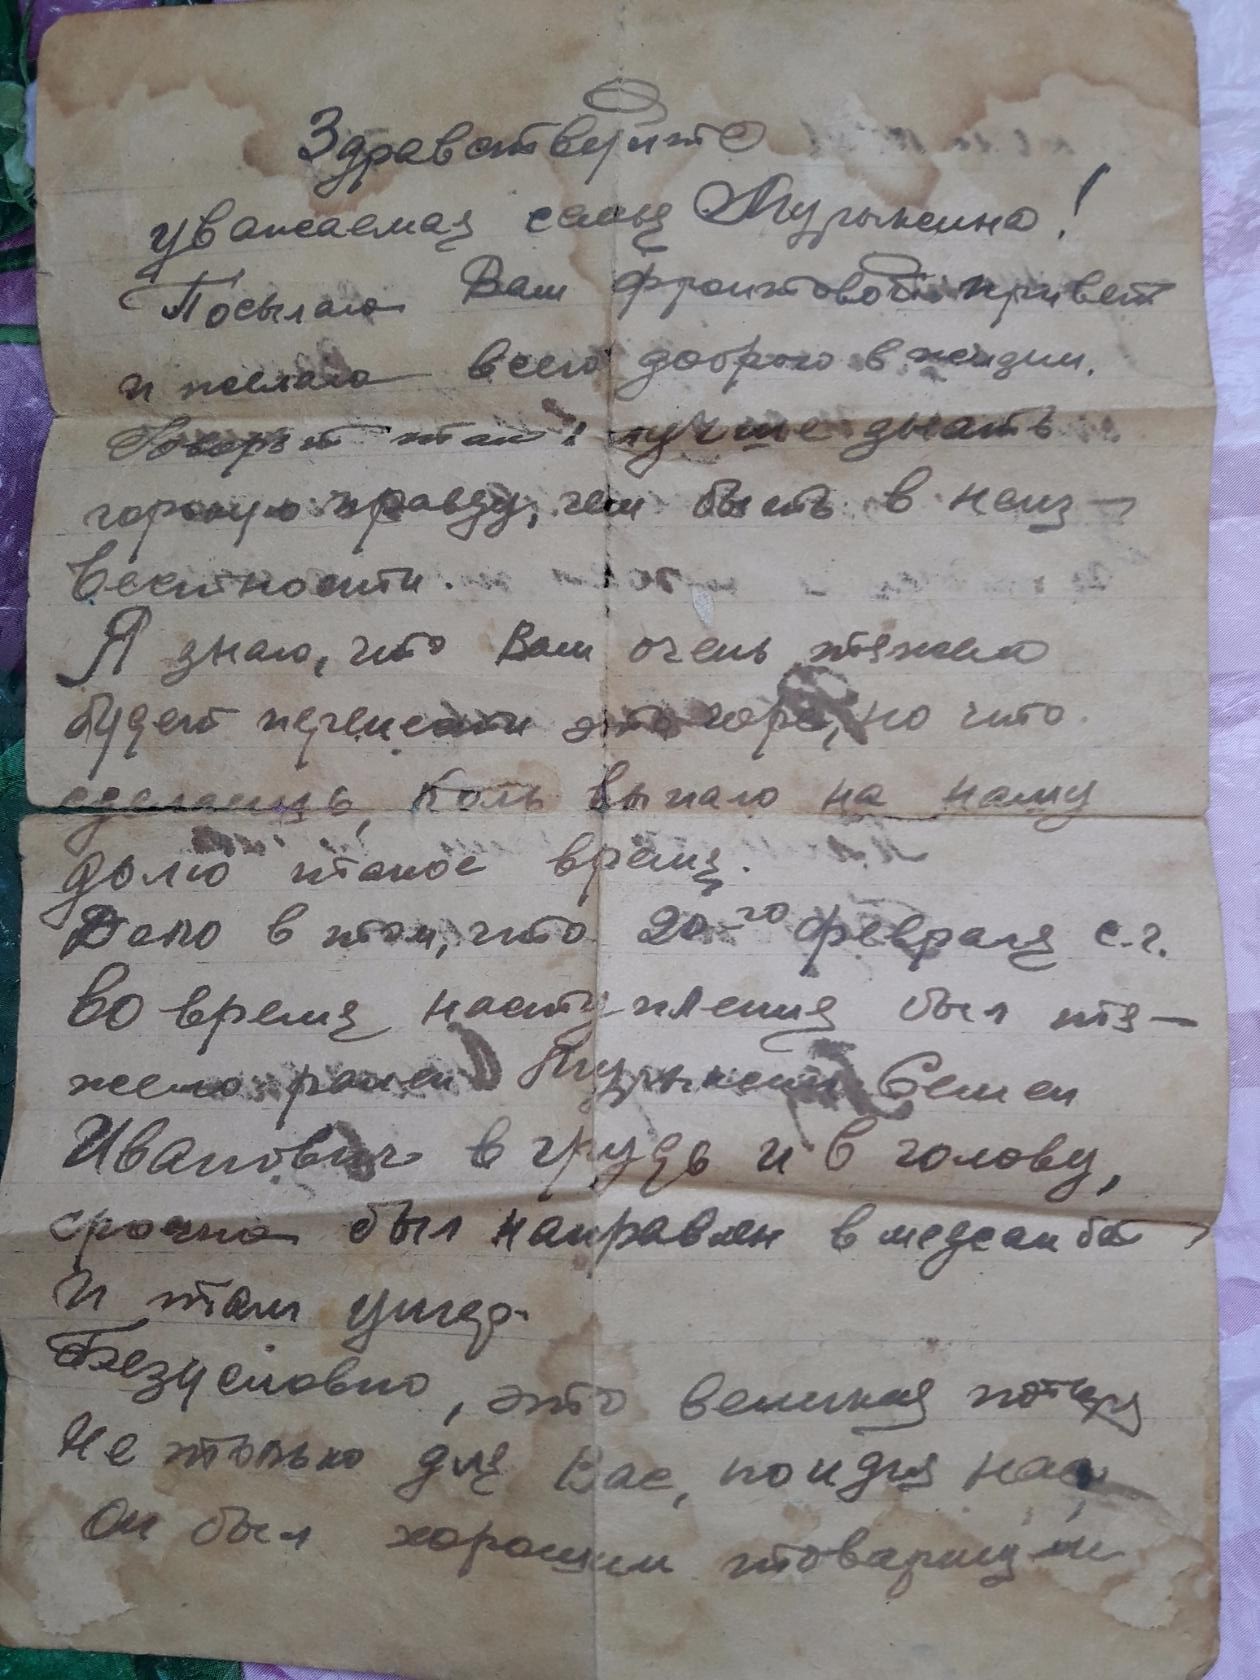 Здравствуйте
уважаемая семья Турыкина!
Посылаю Вам фронтовой привет
и желаю всего доброго в жизни.
Говорят так: лучше знать
горькую правду, чем быть в неиз-
вестности.
Я знаю, что Вам очень тяжело
будет перенести это горе, но что
сделаешь, коль выпало на нашу
долю такое время.
Дело в том, что 20-го февраля с.г.
во время наступления был тя-
жело ранен Турыкин Семен
Иванович в грудь и в голову,
срочно был направлен в медсанбат
и там умер.
Безусловно, это великая потеря
не только для Вас, но и для нас,
Он был хорошим товарищем